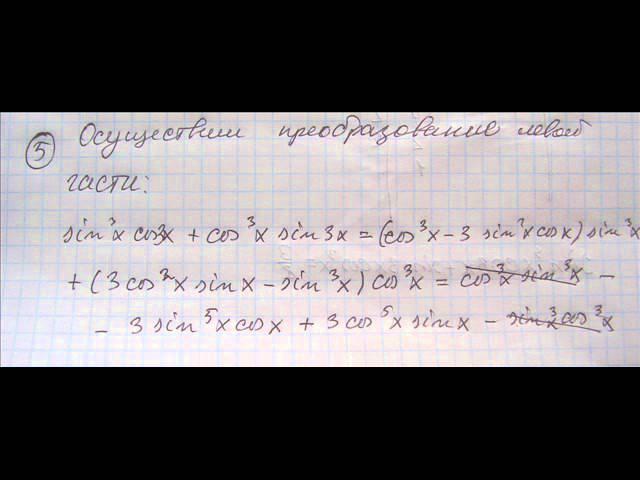 5 Осуществим преобразование левой
части:
sin³x cos3x + cos³x sin3x = (cos³x - 3 sin²x cosx) sin³x
+ (3cos²x sinx - sin³x) cos³x = cos³x sin³x -
- 3 sin⁵x cosx + 3 cos⁵x sinx - sin³x cos³x